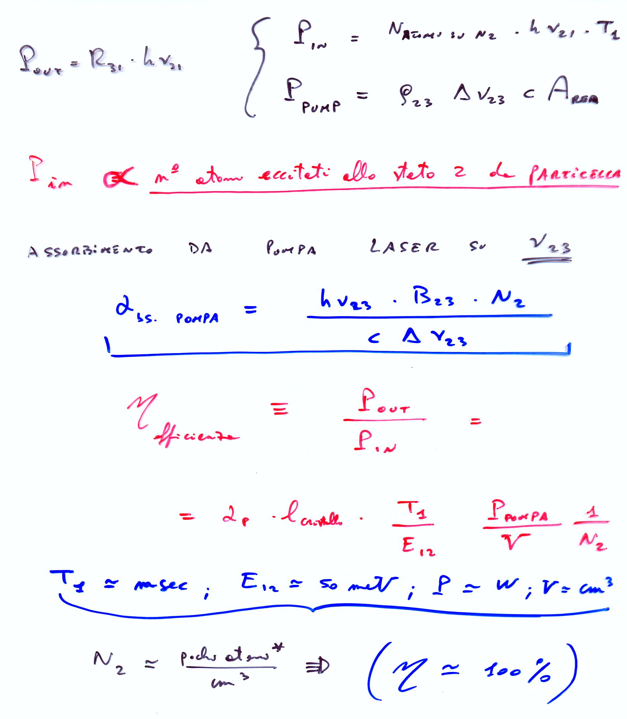 P_OUT = R_31 · hν_21
P_IN = N_ATOMI SU N2 · hν_21 · T_1
P_PUMP = ρ_23 Δν_23 c A_REA
P_in ∝ n° atomi eccitati allo stato 2 da PARTICELLA
ASSORBIMENTO DA POMPA LASER SU ν_23
α_ss. POMPA = hν_23 · B_23 · N_2 / c Δν_23
η_efficienza ≡ P_OUT / P_IN =
= α_p · l_cristallo · T_1 / E_12 P_POMPA / V 1 / N_2
T_1 ≃ msec ; E_12 ≃ 50 meV ; P ≃ W ; V = cm^3
N_2 ≃ pochi atomi* / cm^3 ⇒ (η ≃ 100%)